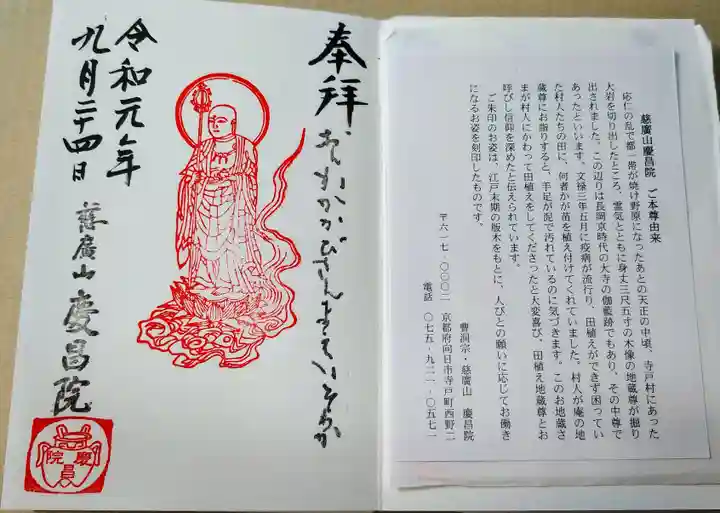 奉拝
おんかかかびさんまえいそわか
令和元年
九月二十四日
慈廣山 慶昌院
慶昌院
慈廣山慶昌院 ご本尊由来
応仁の乱で都一帯が焼け野原になったあとの天正の中頃、寺戸村にあった
大岩を切り出したところ、霊気とともに身丈三尺五寸の木像の地蔵尊が掘り
出されました。この辺りは長岡京時代の大寺の伽藍跡でもあり、その中尊で
あったといいます。文禄三年五月に疫病が流行り、田植えができず困ってい
た村人たちの田に、何者かが苗を植え付けてくれていました。村人が庵の地
蔵尊にお詣りすると、手足が泥で汚れているのに気づきます。このお地蔵さ
まが村人にかわって田植えをしてくださったと大変喜び、田植え地蔵尊とお
呼びし信仰を深めたと伝えられています。
ご朱印のお姿は、江戸末期の版木をもとに、人びとの願いに応じてお働き
になるお姿を刻印したものです。
曹洞宗・慈廣山 慶昌院
〒六一七‐〇〇〇二 京都府向日市寺戸町西野二
電話 〇七五‐九二一‐〇五七一